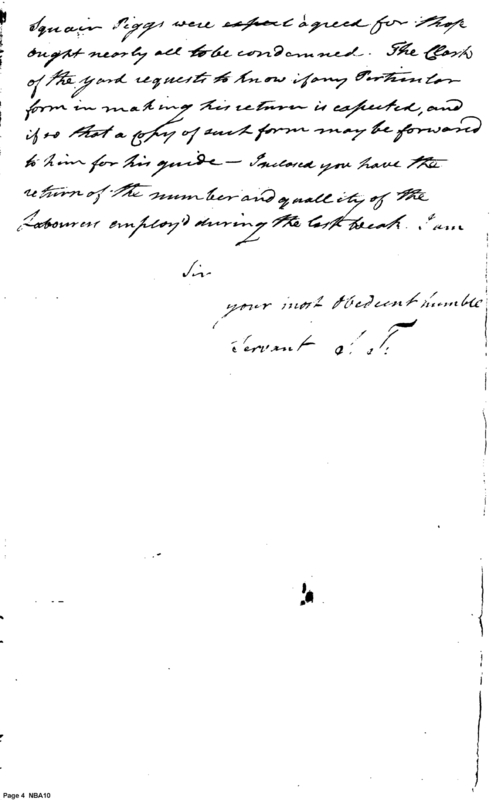 Squair Piggs were expect agreed for those
ought nearly all to be condemned. The Clark
of the yard requests to know if any Perticular
form in making his return is expected, and
if so that a Copy of such form may be forward
to him for his guide - Inclosed you have the
return of the number and quallity of the
Labourers employ'd during the last week. I am
Sir
your most Obedient humble
Servant J. T.
Page 4 NBA10